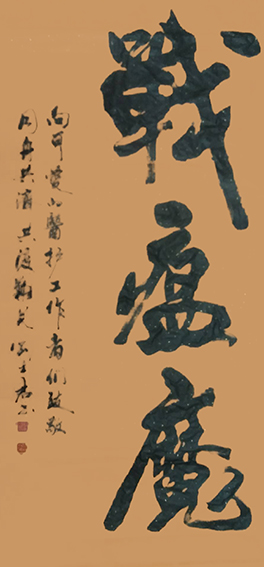 戰瘟魔
向可愛的醫护工作者们致敬
同舟共濟共渡難关